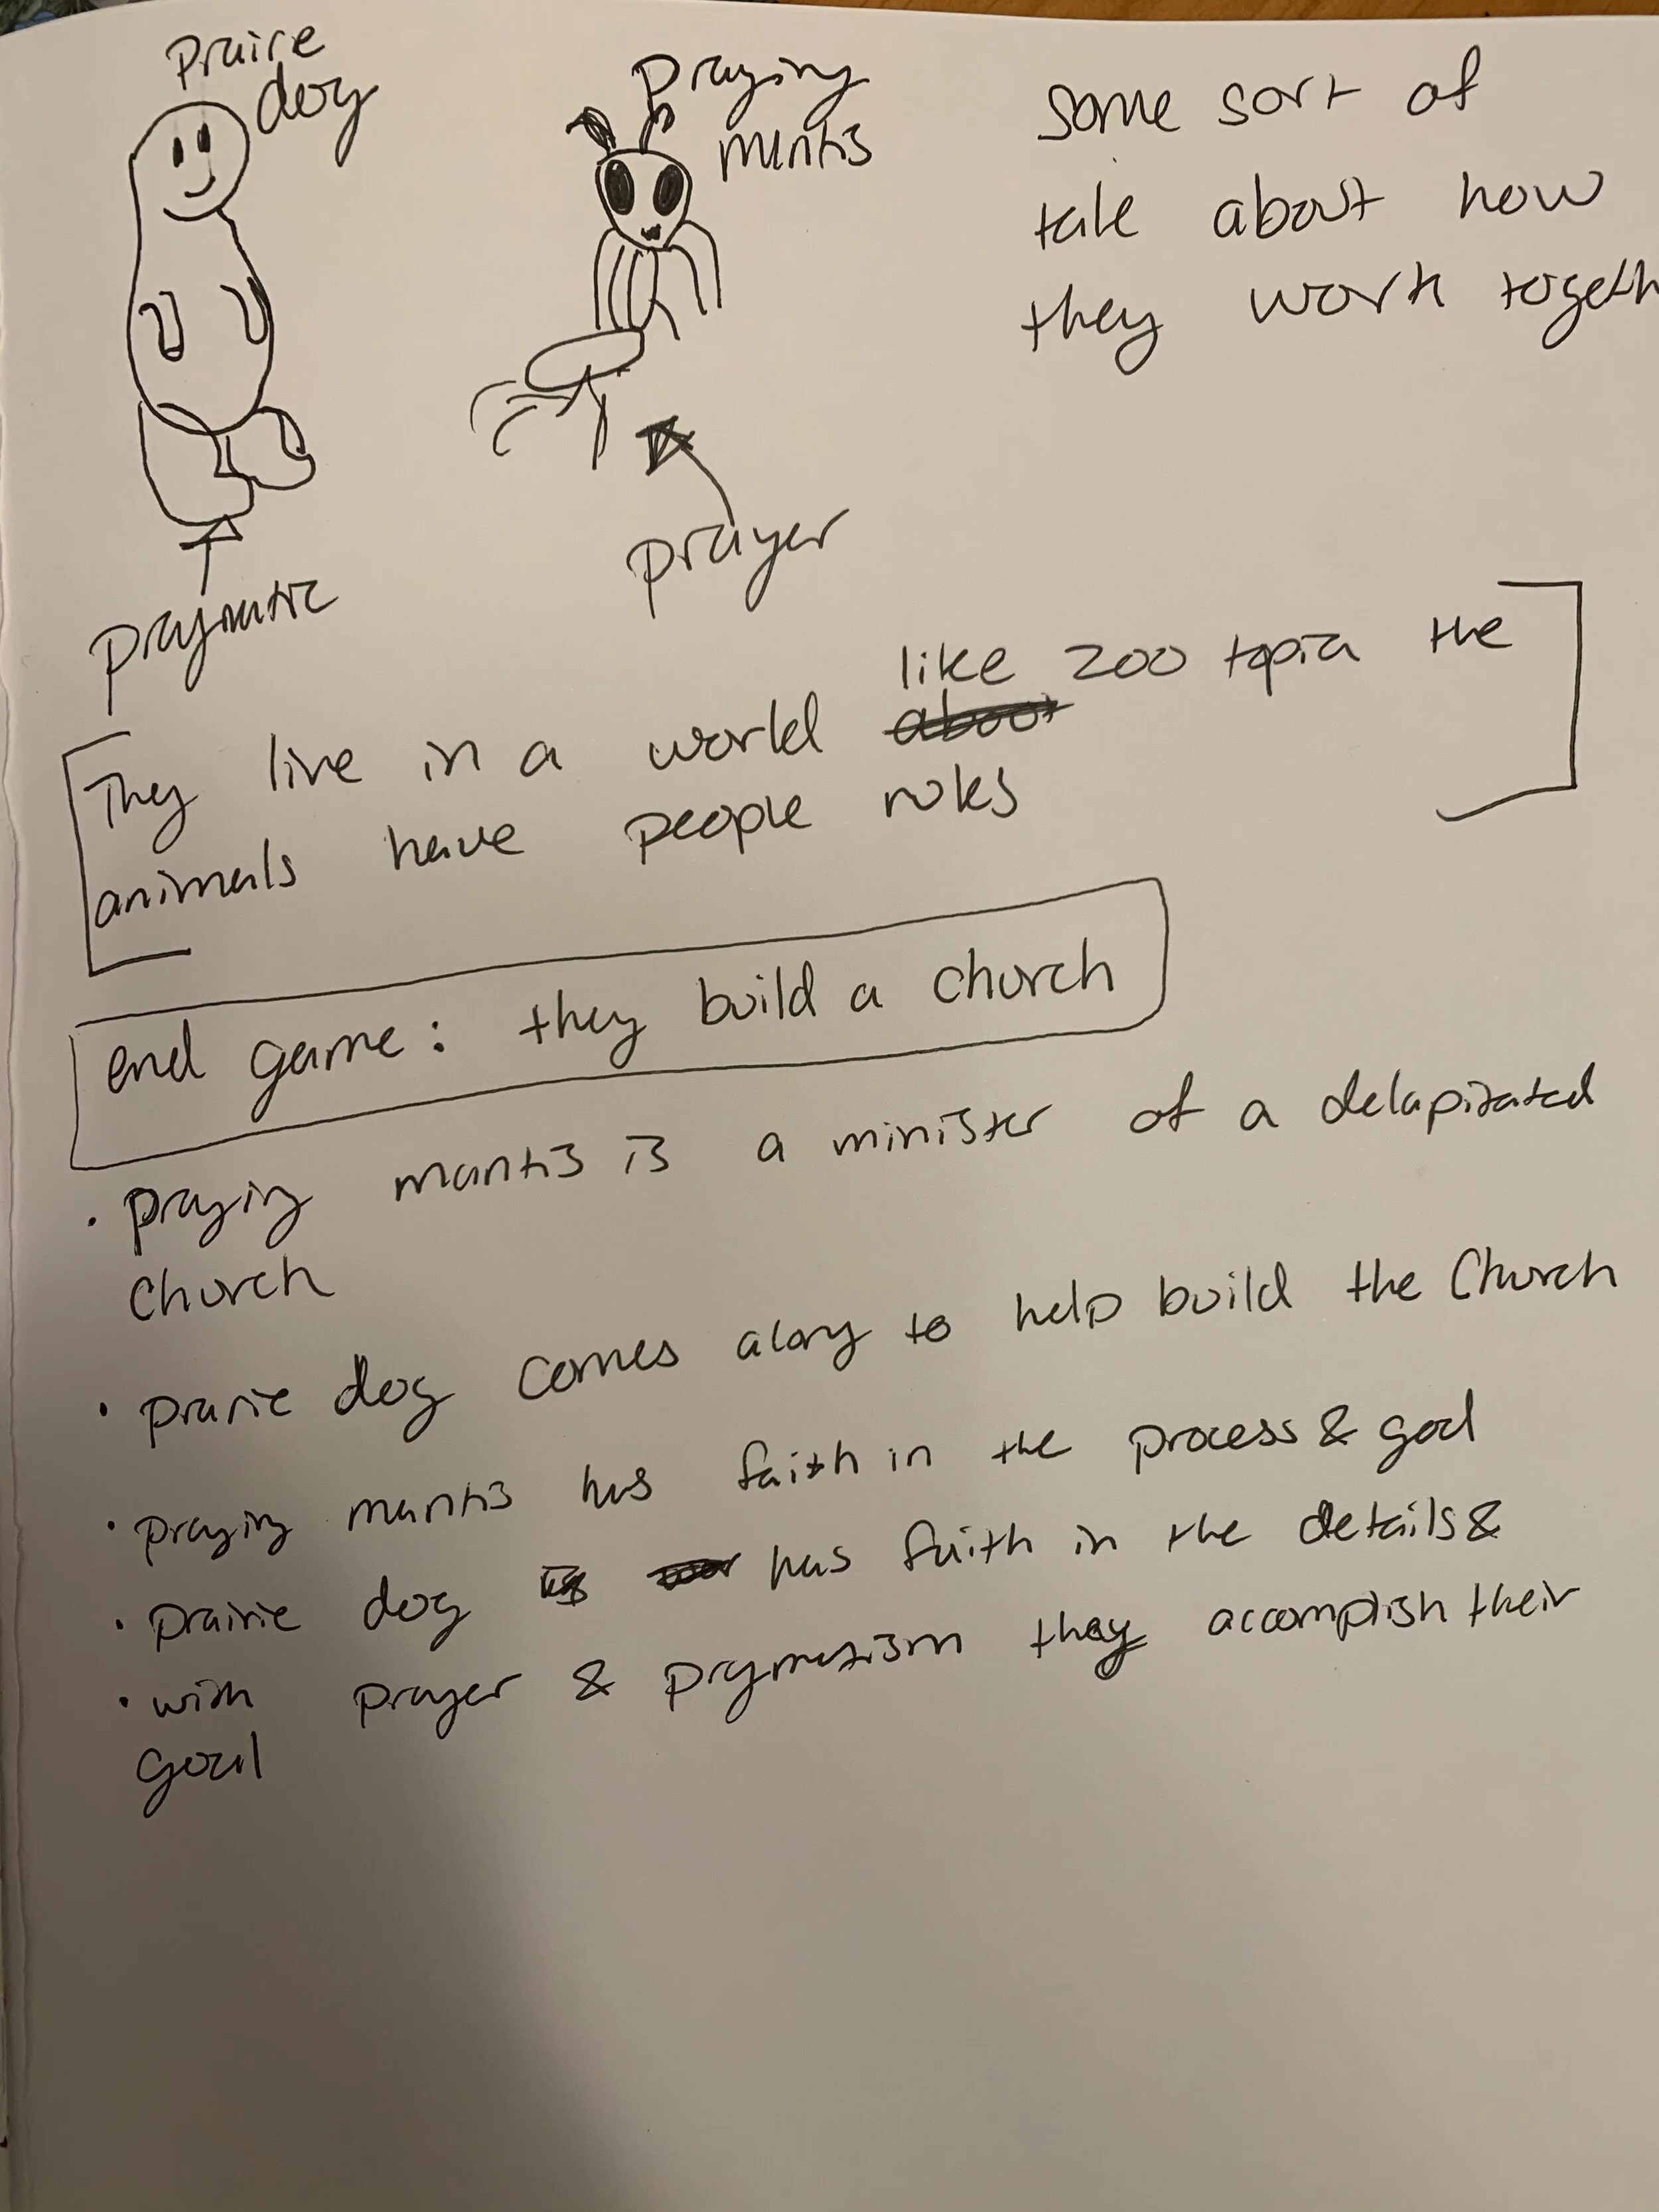 Praire
dog
Praying
mantis
some sort of
tale about how
they work togeth
prayer
pragmatic
like zootopia the
They live in a world about
animals have people roles
end game: they build a church
• praying mantis is a minister of a delapitated
church
• prarie dog comes along to help build the church
• praying mantis has faith in the process & god
• prairie dog is has faith in the details &
• with prayer & prgmatism they accomplish their
goal